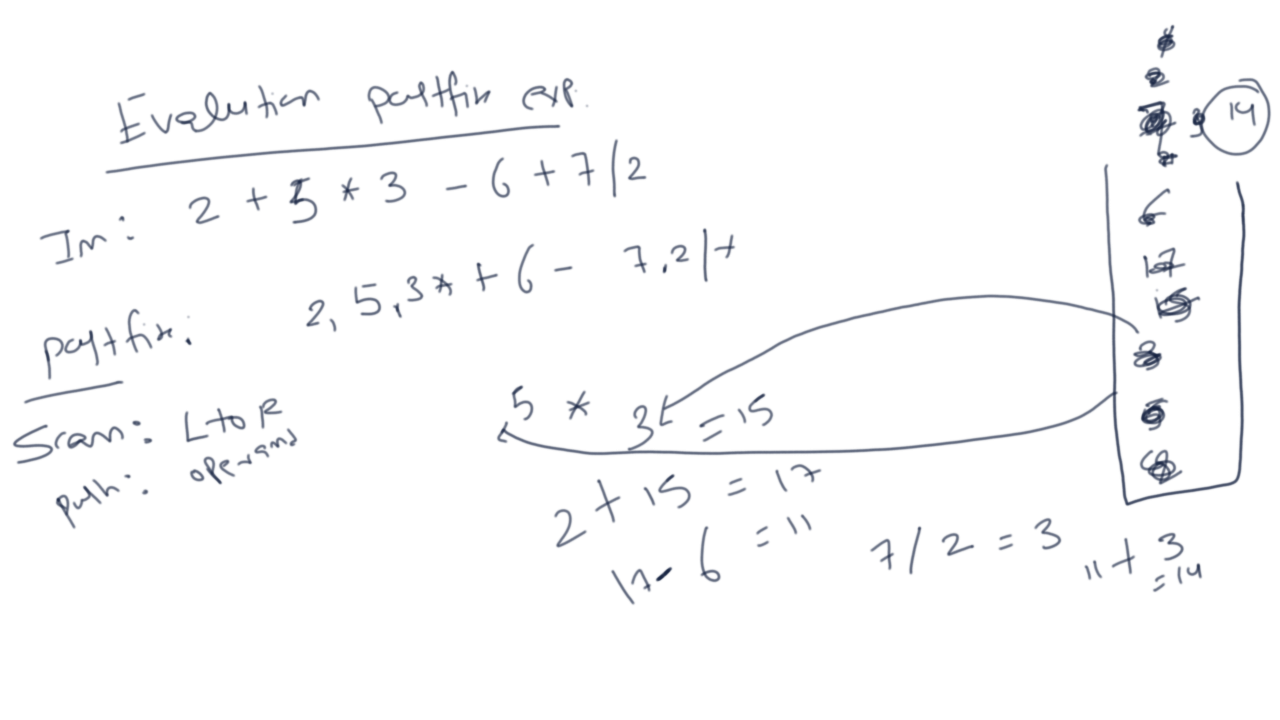 Evalution postfix exp.
In: 2 + 5 * 3 - 6 + 7/2
postfix: 2, 5, 3 * + 6 - 7, 2 / +
Scan: L to R
push: operand
5 * 3 = 15
2 + 15 = 17
17 - 6 = 11
7 / 2 = 3
11 + 3
= 14
2
3
14
6
17
15
3
5